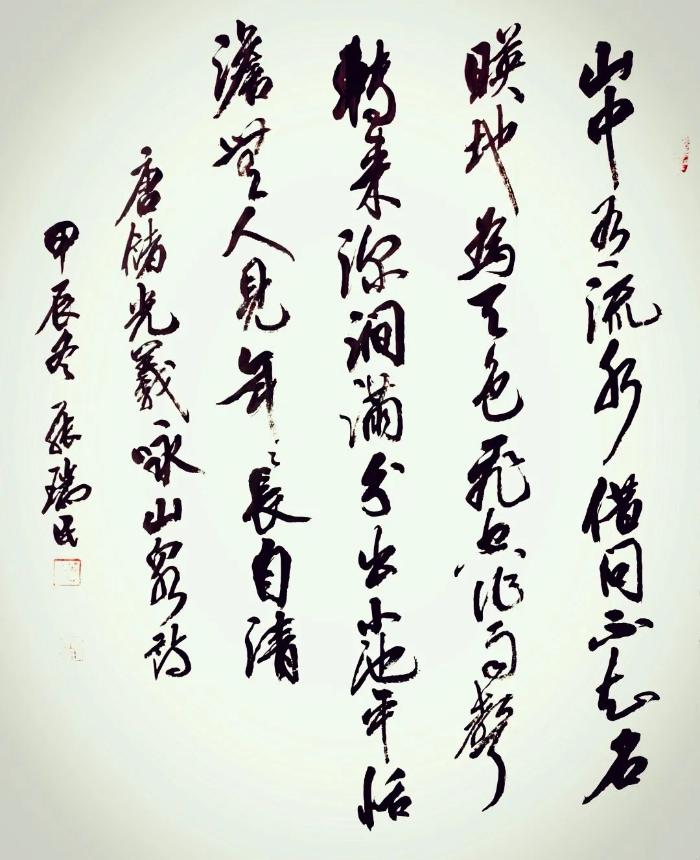 山中有流水借問不知名
暎地為天色飛空作雨聲
轉来深澗滿分出小池平恬
澹無人見年々長自清
唐儲光羲咏山泉詩
甲辰冬張瑞民